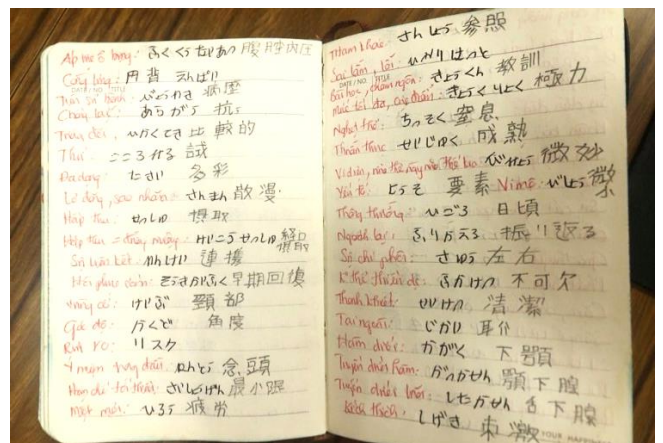 Áp lực ổ bụng: ふくくうないあつ 腹腔内圧
Cong lưng: 円背 えんぱい
DATE/NO. TITLE
Tiền sử bệnh: びょうれき 病歴
Chống lại: あらがう 抗う
Trao đổi, ひかくてき 比較的
Thử: こころみる 試
Đa dạng: たさい 多彩
Lơ đãng, sao nhãng: さんまん 散漫
Hấp thu: せっしゅ 摂取
Hấp thu = đường miệng: けいこうせっしゅ 経口摂取
Sự liên kết: れんけい 連携
Hồi phục sớm: そうきかいふく 早期回復
Vùng cổ: けいぶ 頸部
Góc độ: かくど 角度
Rủi ro: リスク
Ý niệm trong đầu: ねんとう 念頭
Hạn chế tối thiểu: さいしょうげん 最小限
Mệt mỏi: ひろう 疲労
Tham khảo: さんしょう 参照
Sai lầm, lỗi:
DATE/NO. TITLE
Bài học, châm ngôn: きょうくん 教訓
Mức tối đa, cực điểm: きょくりょく 極力
Nghẹt thở: ちっそく 窒息
Thuần thục: せいじゅく 成熟
びみょう 微妙
Yếu tố: ようそ 要素
Thông thường: ひごろ 日頃
Ngoảnh lại: ふりかえる 振り返る
Sự chi phối: さゆう 左右
K thể thiếu đc: ふかけつ 不可欠
Thanh khiết: せいけつ 清潔
Tai ngoài: じかい 耳介
Hàm dưới: かがく 下顎
Tuyến dưới hàm: がっかせん 顎下腺
Tuyến dưới lưỡi: したかせん 舌下腺
Kích thích: しげき 刺激
YOUR HAPPY